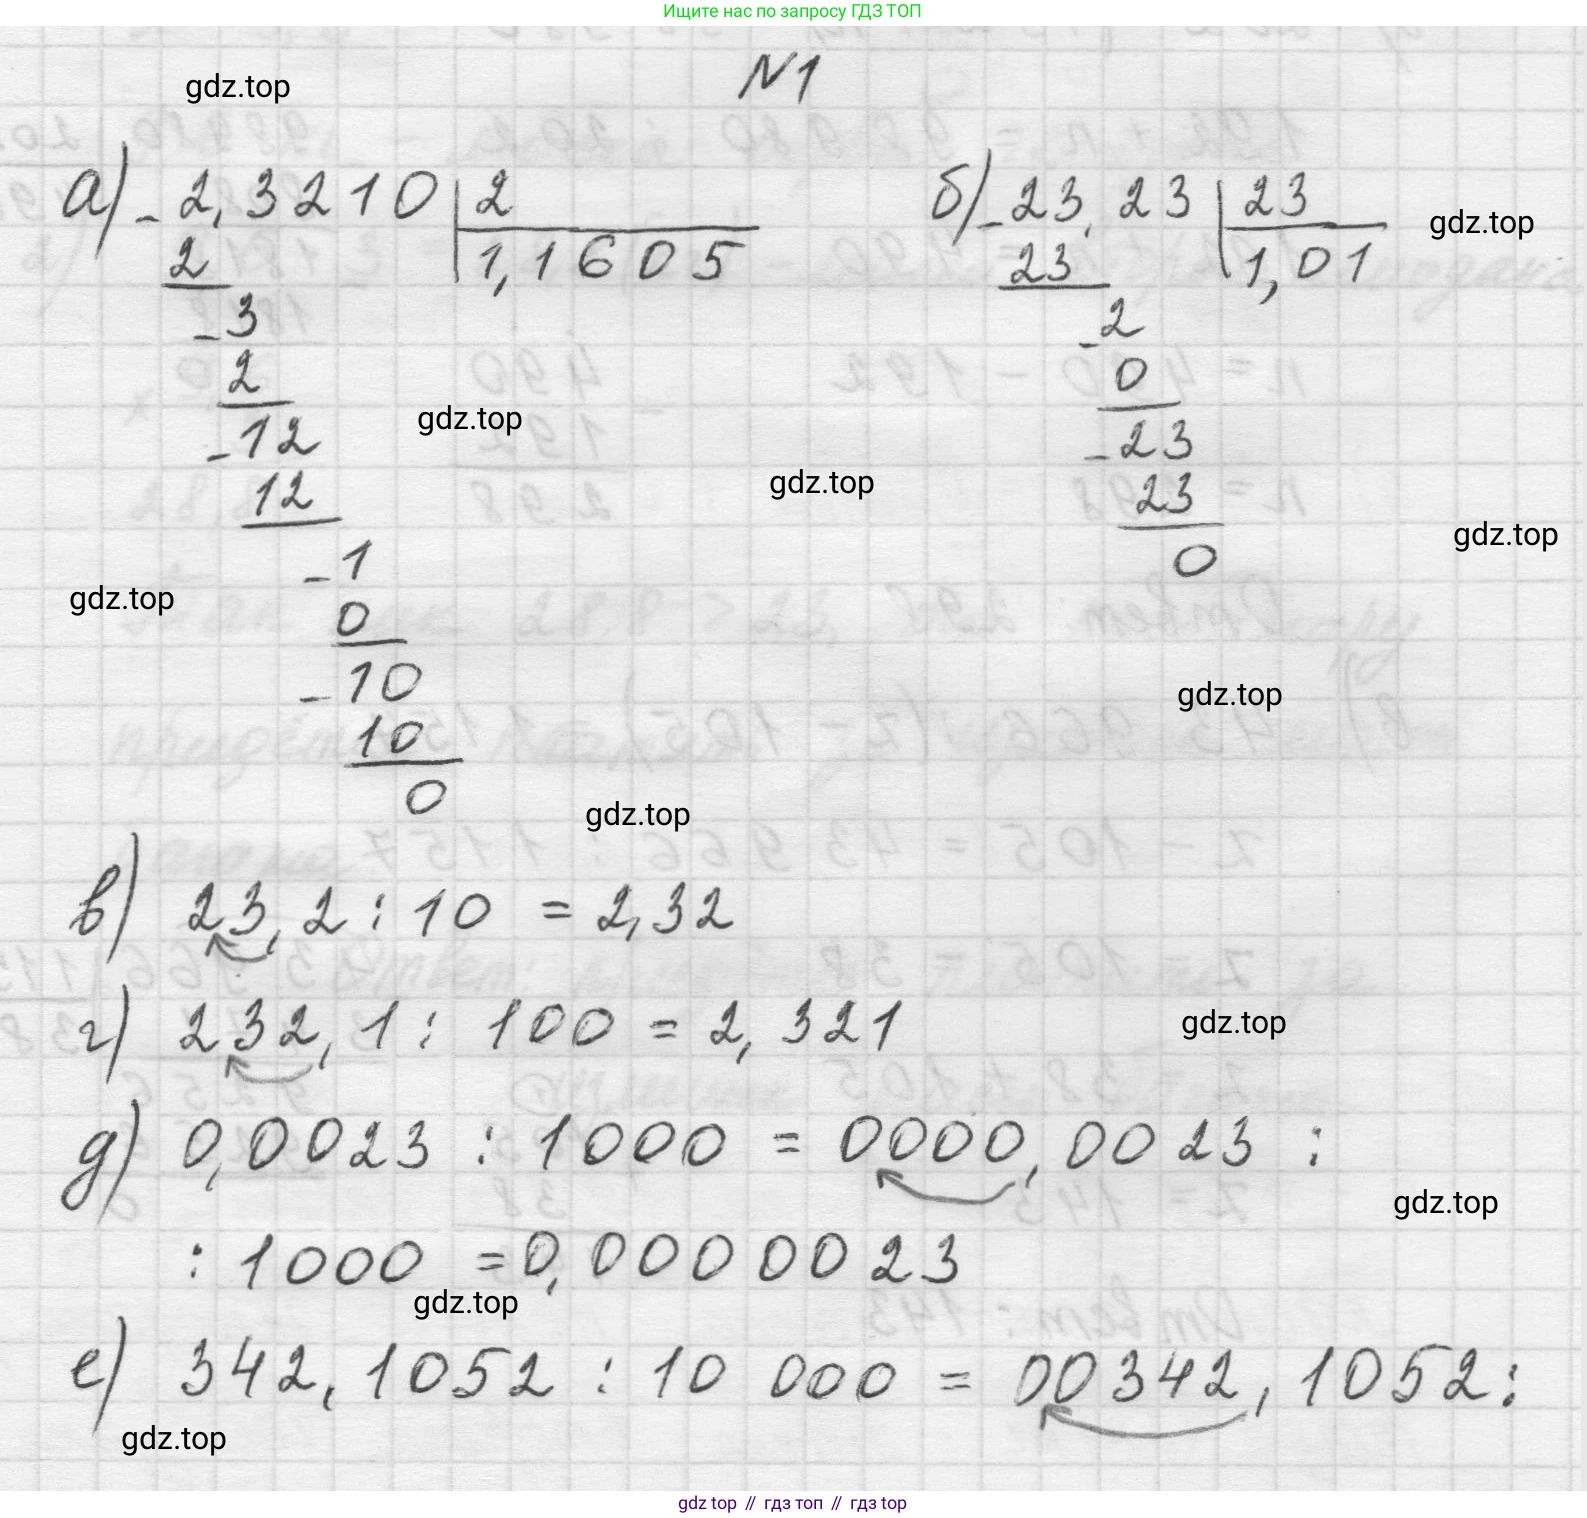 Ищите нас по запросу ГДЗ ТОП
N1
gdz.top
а) - 2,3210 | 2
2
1,1605
- 3
2
- 12
12
- 1
0
- 10
10
0
б) - 23,23 | 23
23
1,01
- 2
0
- 23
23
0
gdz.top
gdz.top
gdz.top
gdz.top
gdz.top
gdz.top
gdz.top
в) 23,2 : 10 = 2,32
г) 232,1 : 100 = 2,321
gdz.top
д) 0,0023 : 1000 = 0000,0023 :
gdz.top
: 1000 = 0,0000023
gdz.top
е) 342,1052 : 10 000 = 00342,1052 :
gdz.top
gdz top // гдз топ // гдз top